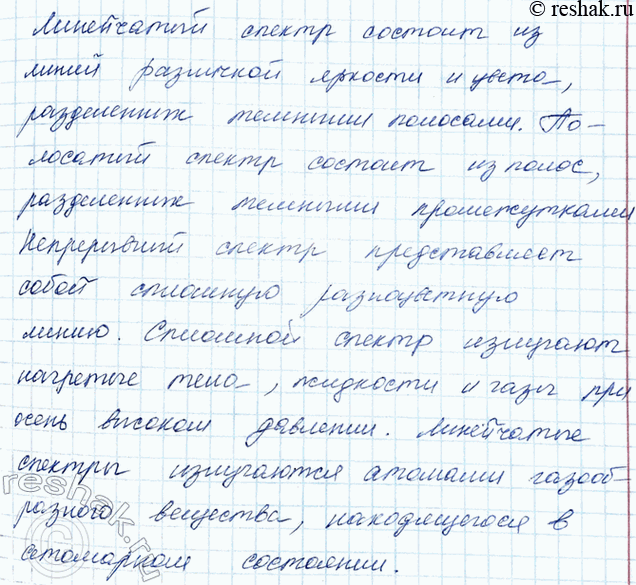 © reshak.ru
Линейчатый спектр состоит из
линий различной яркости и цвета,
разделенных темными полосами. По-
лосатый спектр состоит из полос,
разделенных темными промежутками
Непрерывный спектр представляет
собой сплошную разноцветную
линию. Сплошной спектр излучают
нагретые тела, жидкости и газы при
очень высоком давлении. Линейчатые
спектры излучаются атомами газооб-
разного вещества, находящегося в
атомарном состоянии.
reshak.ru